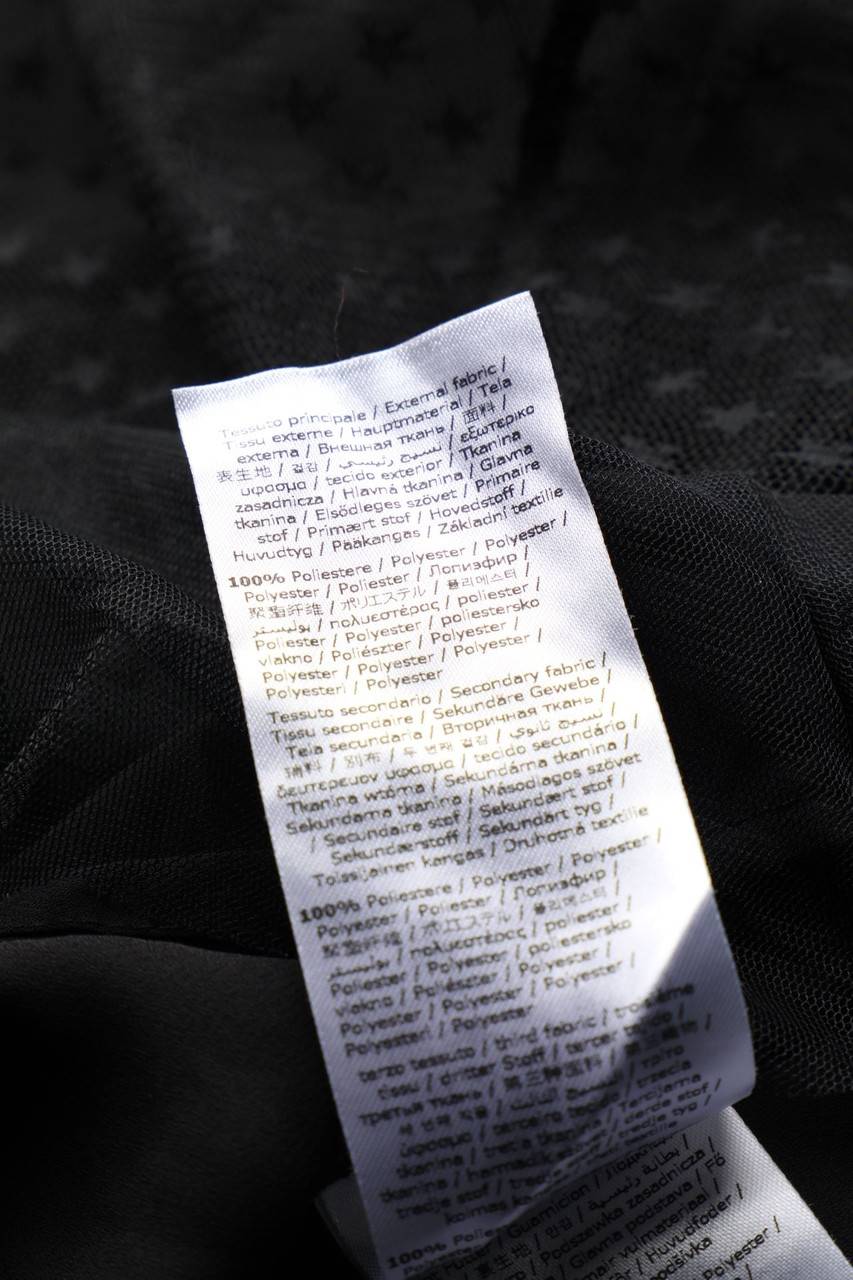 Tessuto principale / External fabric /
Tissu externe / Hauptmaterial / Tela
externa / Внешная ткань / 面料 /
表生地 / 겉감 / نسيج رئيسي / εξωτερικο
υφασμα / tecido exterior / Tkanina
zasadnicza / Hlavná tkanina / Glavna
tkanina / Elsődleges szövet / Primaire
stof / Primært stof / Hovedstoff /
Huvudtyg / Pääkangas / Základní textilie
100% Poliestere / Polyester / Polyester /
Polyester / Poliester / Лопиэфир /
聚酯纤维 / ポリエステル / 폴리에스터 /
بوليستر / πολυεστέρας / poliester /
Poliester / Polyester / poliestersko
vlakno / Poliészter / Polyester /
Polyester / Polyester / Polyester /
Polyesteri / Polyester
Tessuto secondario / Secondary fabric /
Tissu secondaire / Sekundäre Gewebe /
Tela secundaria / Вторичная ткань /
辅料 / 別布 / 두 번째 겉감 / نسيج ثانوي /
δευτερευον υφασμα / tecido secundário /
Tkanina wtórna / Sekundárna tkanina /
Sekundarna tkanina / Másodlagos szövet
/ Secundaire stof / Sekundært stof /
Sekundærstoff / Sekundärt tyg /
Toissijainen kangas / Druhotná textilie
100% Poliestere / Polyester / Polyester /
Polyester / Poliester / Лопиэфир /
聚酯纤维 / ポリエステル / 폴리에스터 /
بوليستر / πολυεστέρας / poliester /
Poliester / Polyester / poliestersko
vlakno / Poliészter / Polyester /
Polyester / Polyester / Polyester /
Polyesteri / Polyester
terzo tessuto / third fabric / troisième
tissu / dritter Stoff / tercer tejido /
третья ткань / 第三种面料 /
세 번째 직물 / النسيج الثالث / τρίτο
ύφασμα / terceiro tecido / trzecia
tkanina / tretia tkanina / Tercjarna
tkanina / harmadik szövet / derde stof /
tredje stof / tredje stoff / tredje tyg /
kolmas
100%
/ Guarnición /
/ 裏生地 / 안감 / بطانة رئيسية /
/ Podszewka zasadnicza /
/ Glavna podstava / Fő
/ Huvudfoder /
Polyester /